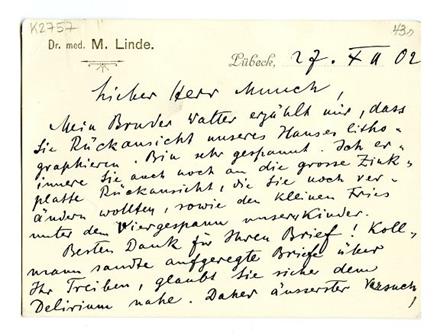 K2757
43
Dr. med. M. Linde.
Lübeck, 27. XII 02
Lieber Herr Munch!
Mein Bruder Walter erzählt mir, dass
Sie Rückansicht unseres Hauses litho-
graphieren. Bin sehr gespannt. Ich er-
innere Sie auch noch an die grosse Zink-
platte Rückansicht, die Sie noch ver-
ändern wollten, sowie den kleinen Fries
unter dem Viergespann unserer Kinder.
Besten Dank für Ihren Brief! Koll-
mann sandte aufgeregte Briefe über
Ihr Treiben, glaubt Sie sicher dem
Delirium nahe. Daher äusserster Versuch!